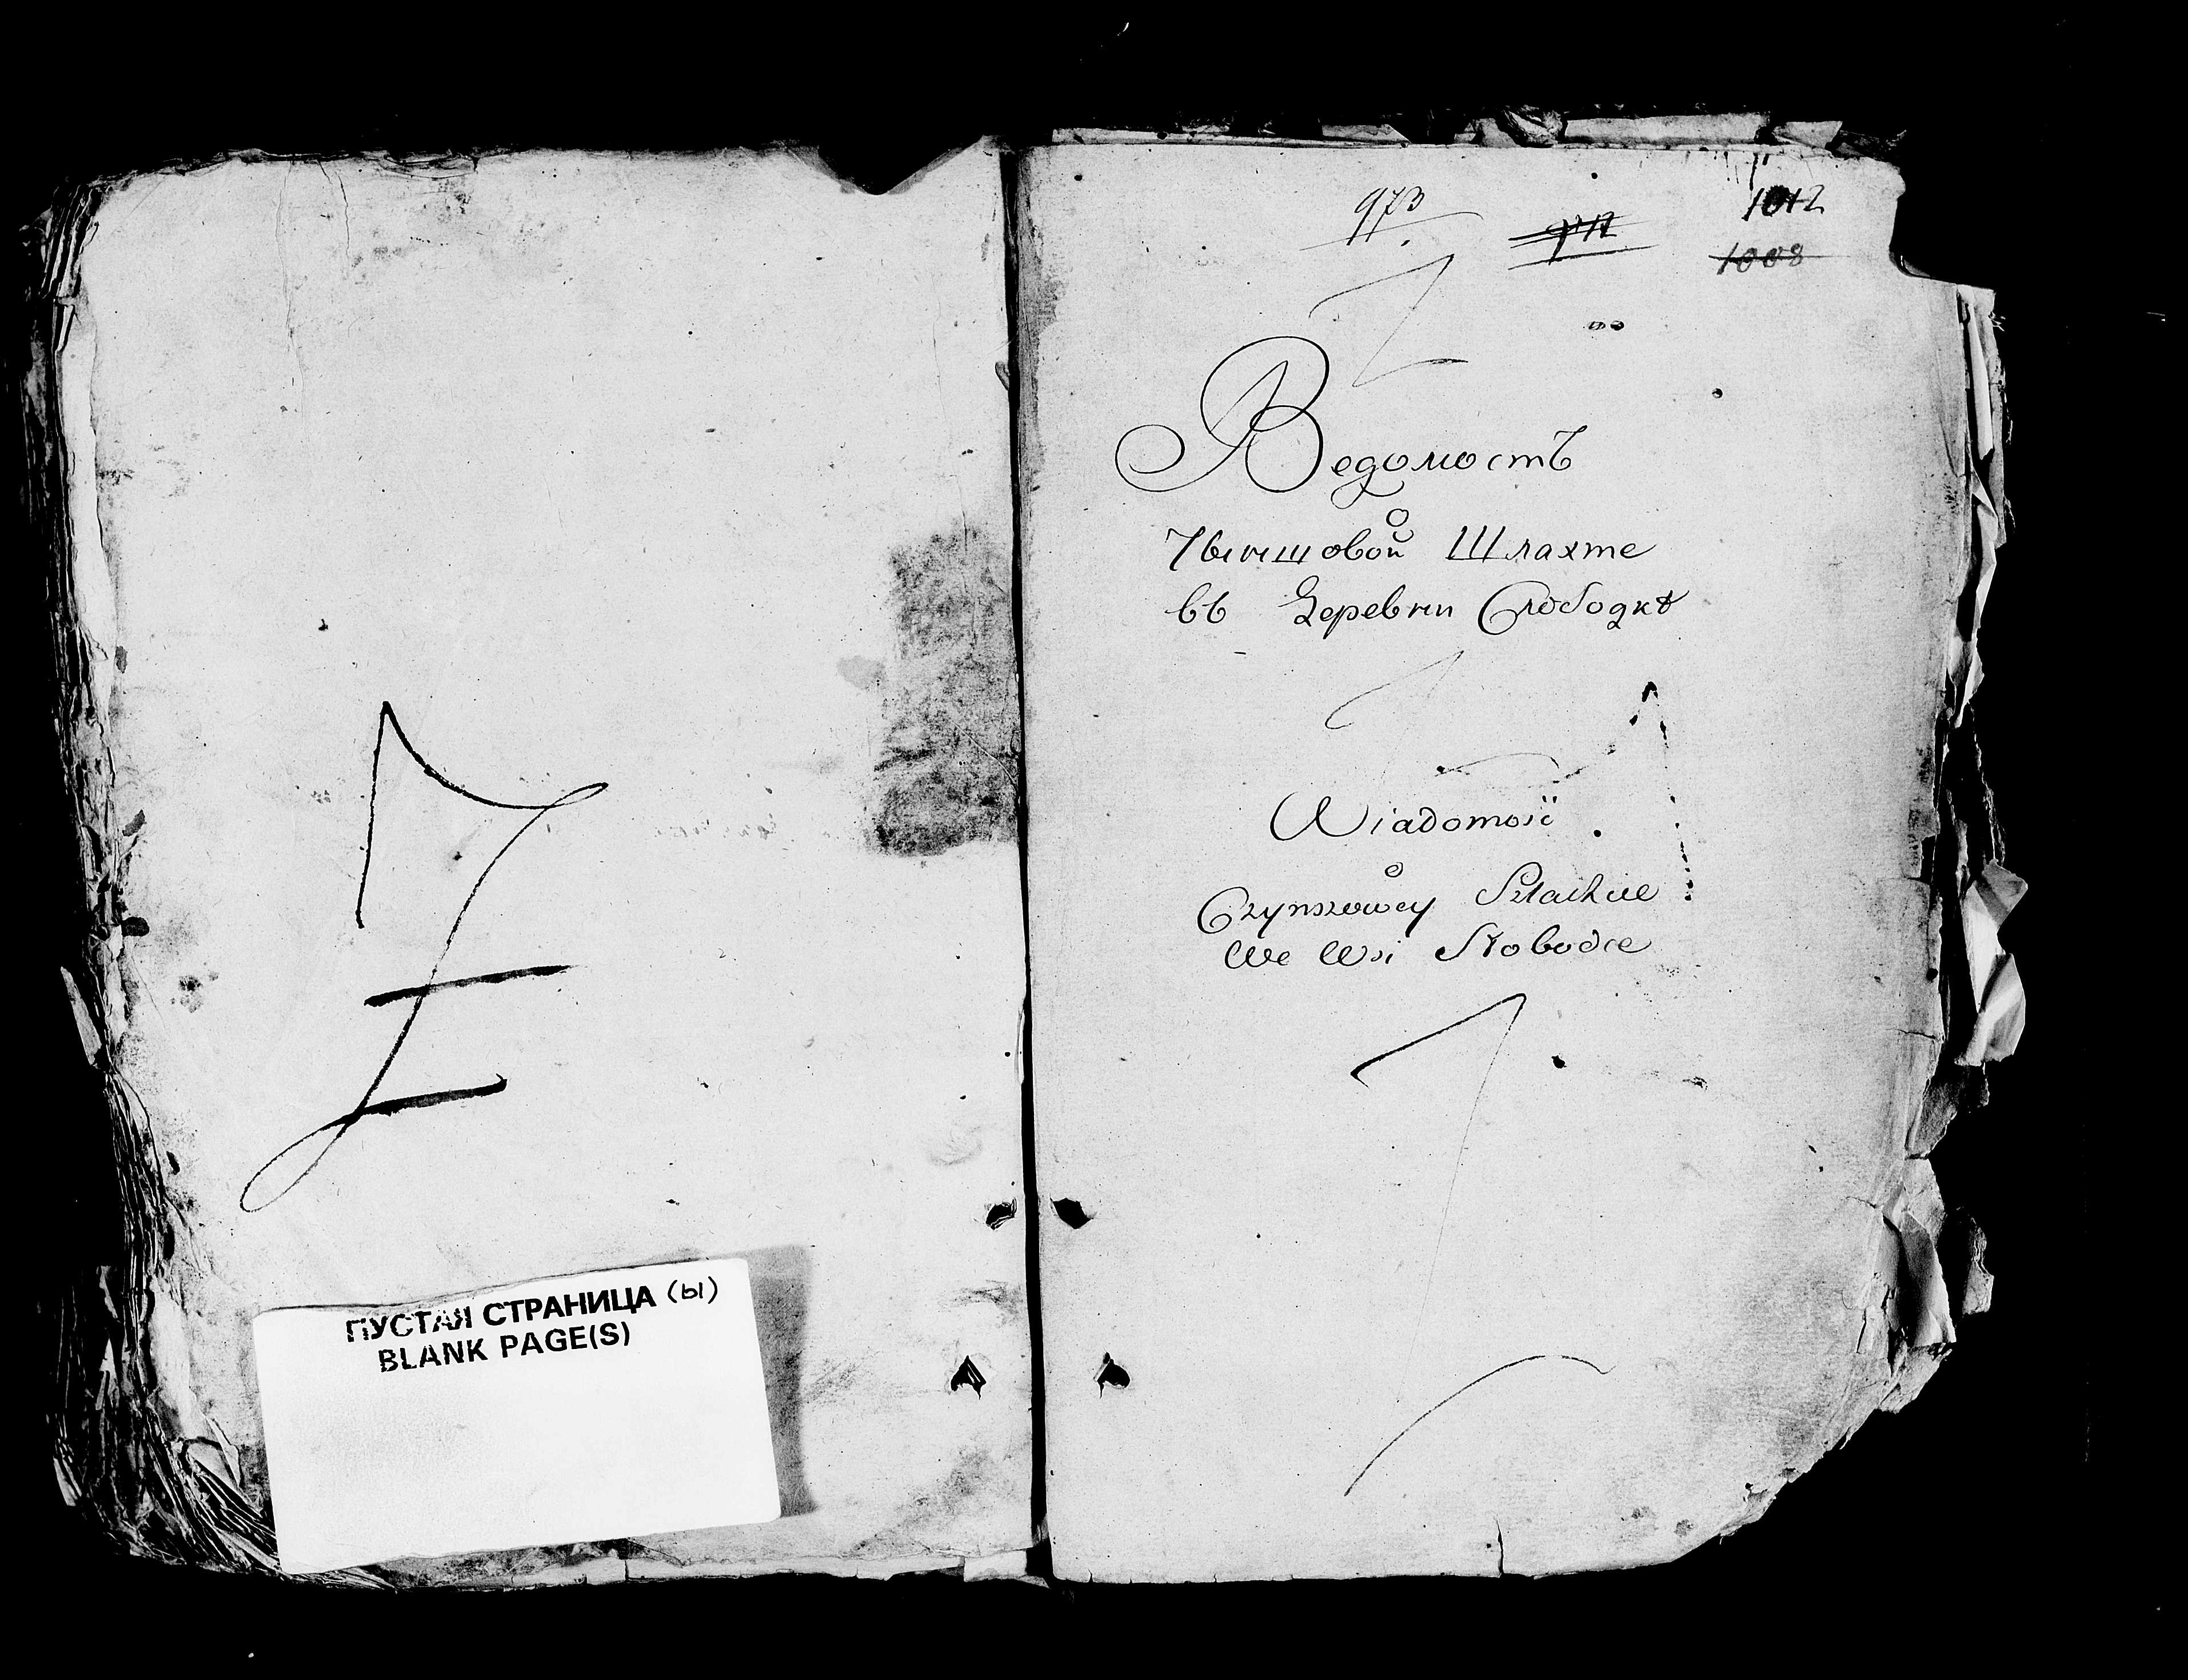 ПУСТАЯ СТРАНИЦА (Ы)
BLANK PAGE(S)
973
1012
1008
Ведомость
О
Чыншовой Шляхте
въ Деревни Слободкѣ
Wiadomość
o
Czynszowey Szlachcie
We Wsi Słobodce